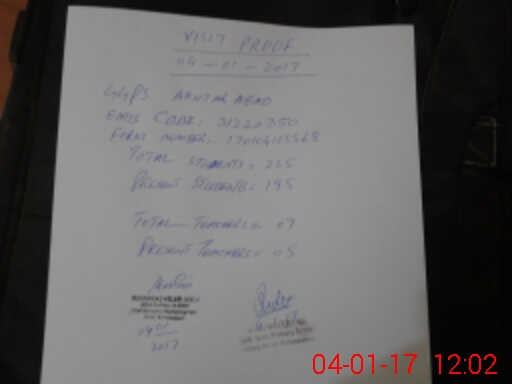 VISIT PROOF
04-01-2017
GGPS AKHTAR ABAD
EMIS CODE: 31220350
FORM NUMBER: 170104115568
TOTAL STUDENTS: 225
PRESENT STUDENTS: 195
TOTAL TEACHERS: 07
PRESENT TEACHERS: 05
04 01
2017
04-01-17 12:02